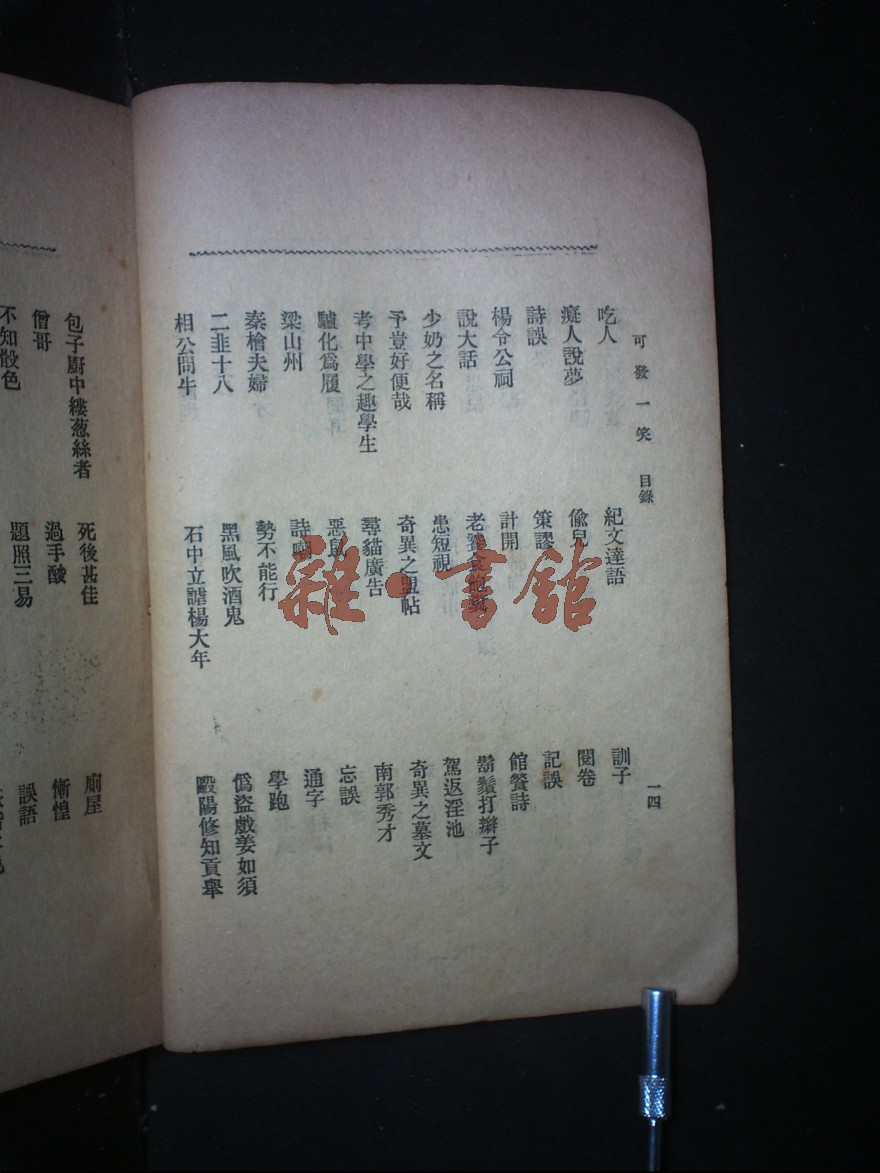 可發一笑 目錄
一四
吃人
紀文達語
訓子
癡人說夢
偸兒
閱卷
詩誤
策謬
記誤
楊令公祠
計開
館餐詩
說大話
老饕食
鬍鬚打辮子
少奶之名稱
患短視
駕返淫池
予豈好便哉
奇異之盟帖
奇異之墓文
考中學之趣學生
尋貓廣告
南郭秀才
驢化爲履
惡鼠
忘誤
梁山州
詩嘲
通字
秦檜夫婦
勢不能行
學跑
二韭十八
黑風吹酒鬼
僞盜戲姜如須
相公問牛
石中立謔楊大年
毆陽修知貢舉
包子厨中縷葱絲者
死後甚佳
廁屋
僧哥
過手酸
慚惶
不知骰色
題照三易
誤語
雜·書館